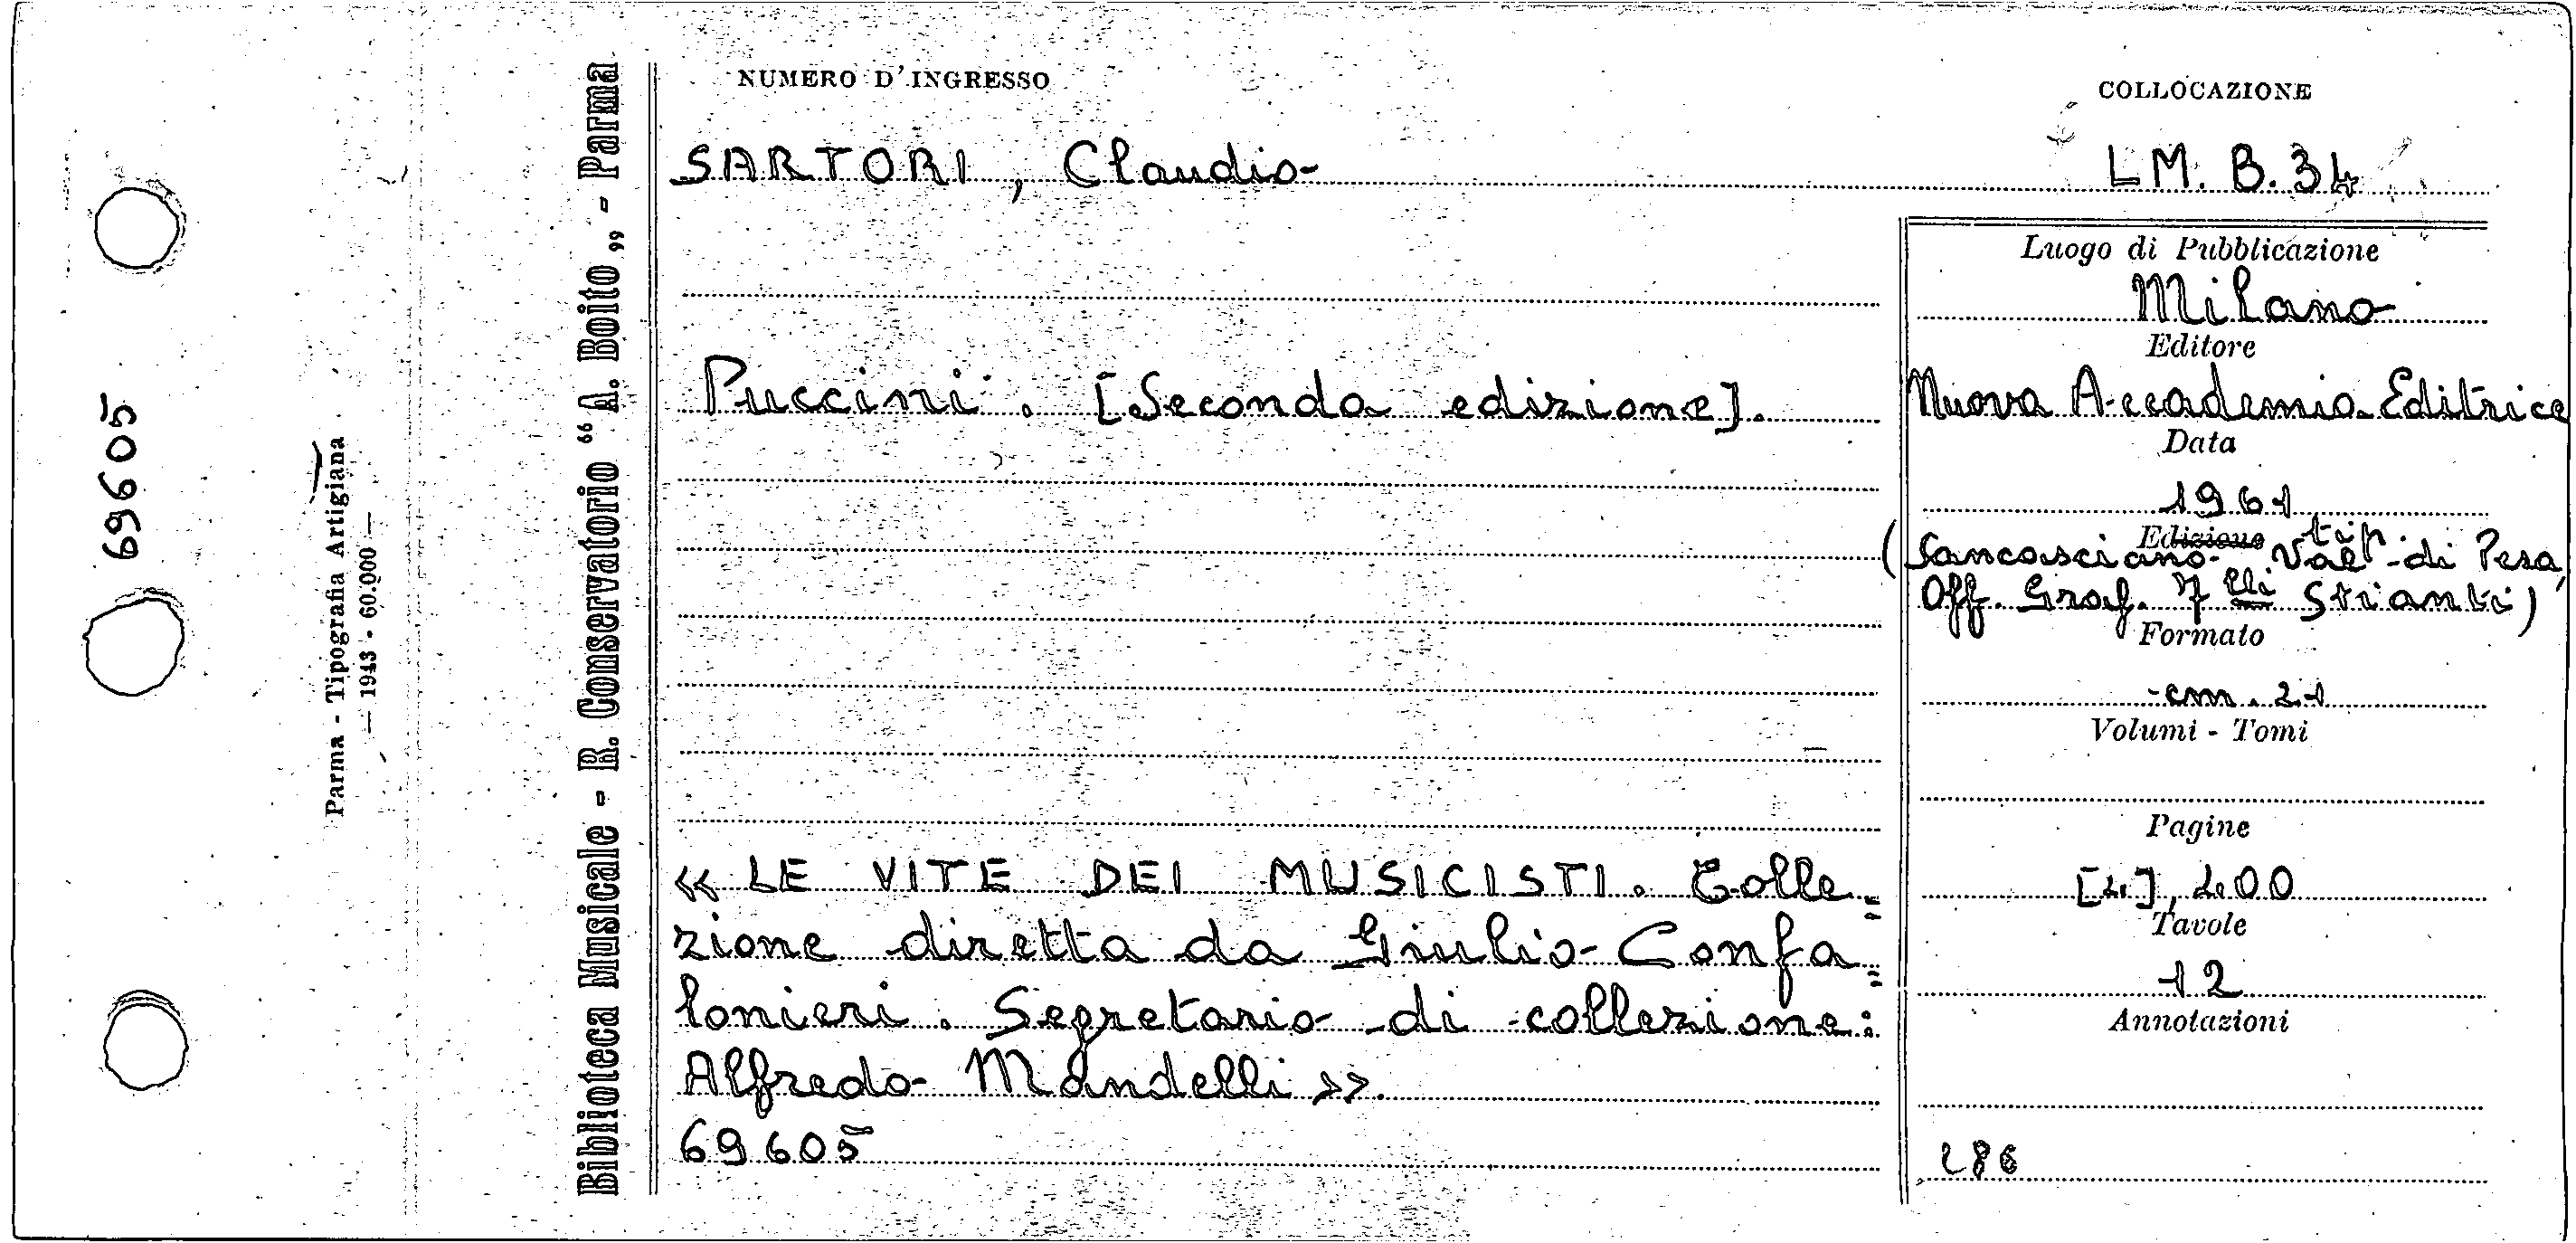 69605
Parma - Tipografia Artigiana
— 1943 - 60.000 —
Biblioteca Musicale - R. Conservatorio “ A. Boito „ - Parma
NUMERO D'INGRESSO
COLLOCAZIONE
SARTORI, Claudio
LM. B. 34
Puccini. [Seconda edizione].
« LE VITE DEI MUSICISTI. Colle=
zione diretta da Giulio Confa=
lonieri. Segretario di collezione:
Alfredo Mandelli ».
69605
Luogo di Pubblicazione
Milano
Editore
Nuova Accademia Editrice
Data
1961
Edizione tip.
(Sancasciano Val di Pesa,
Off. Graf. F.lli Stianti)
Formato
cm. 21
Volumi - Tomi
Pagine
200
Tavole
12
Annotazioni
286